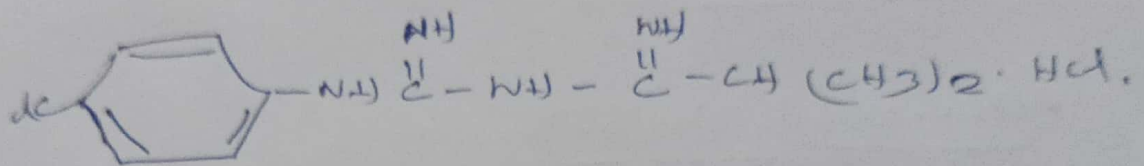 NH NH
dC -NH C - NH - C - CH (CH3)2 · HCl.